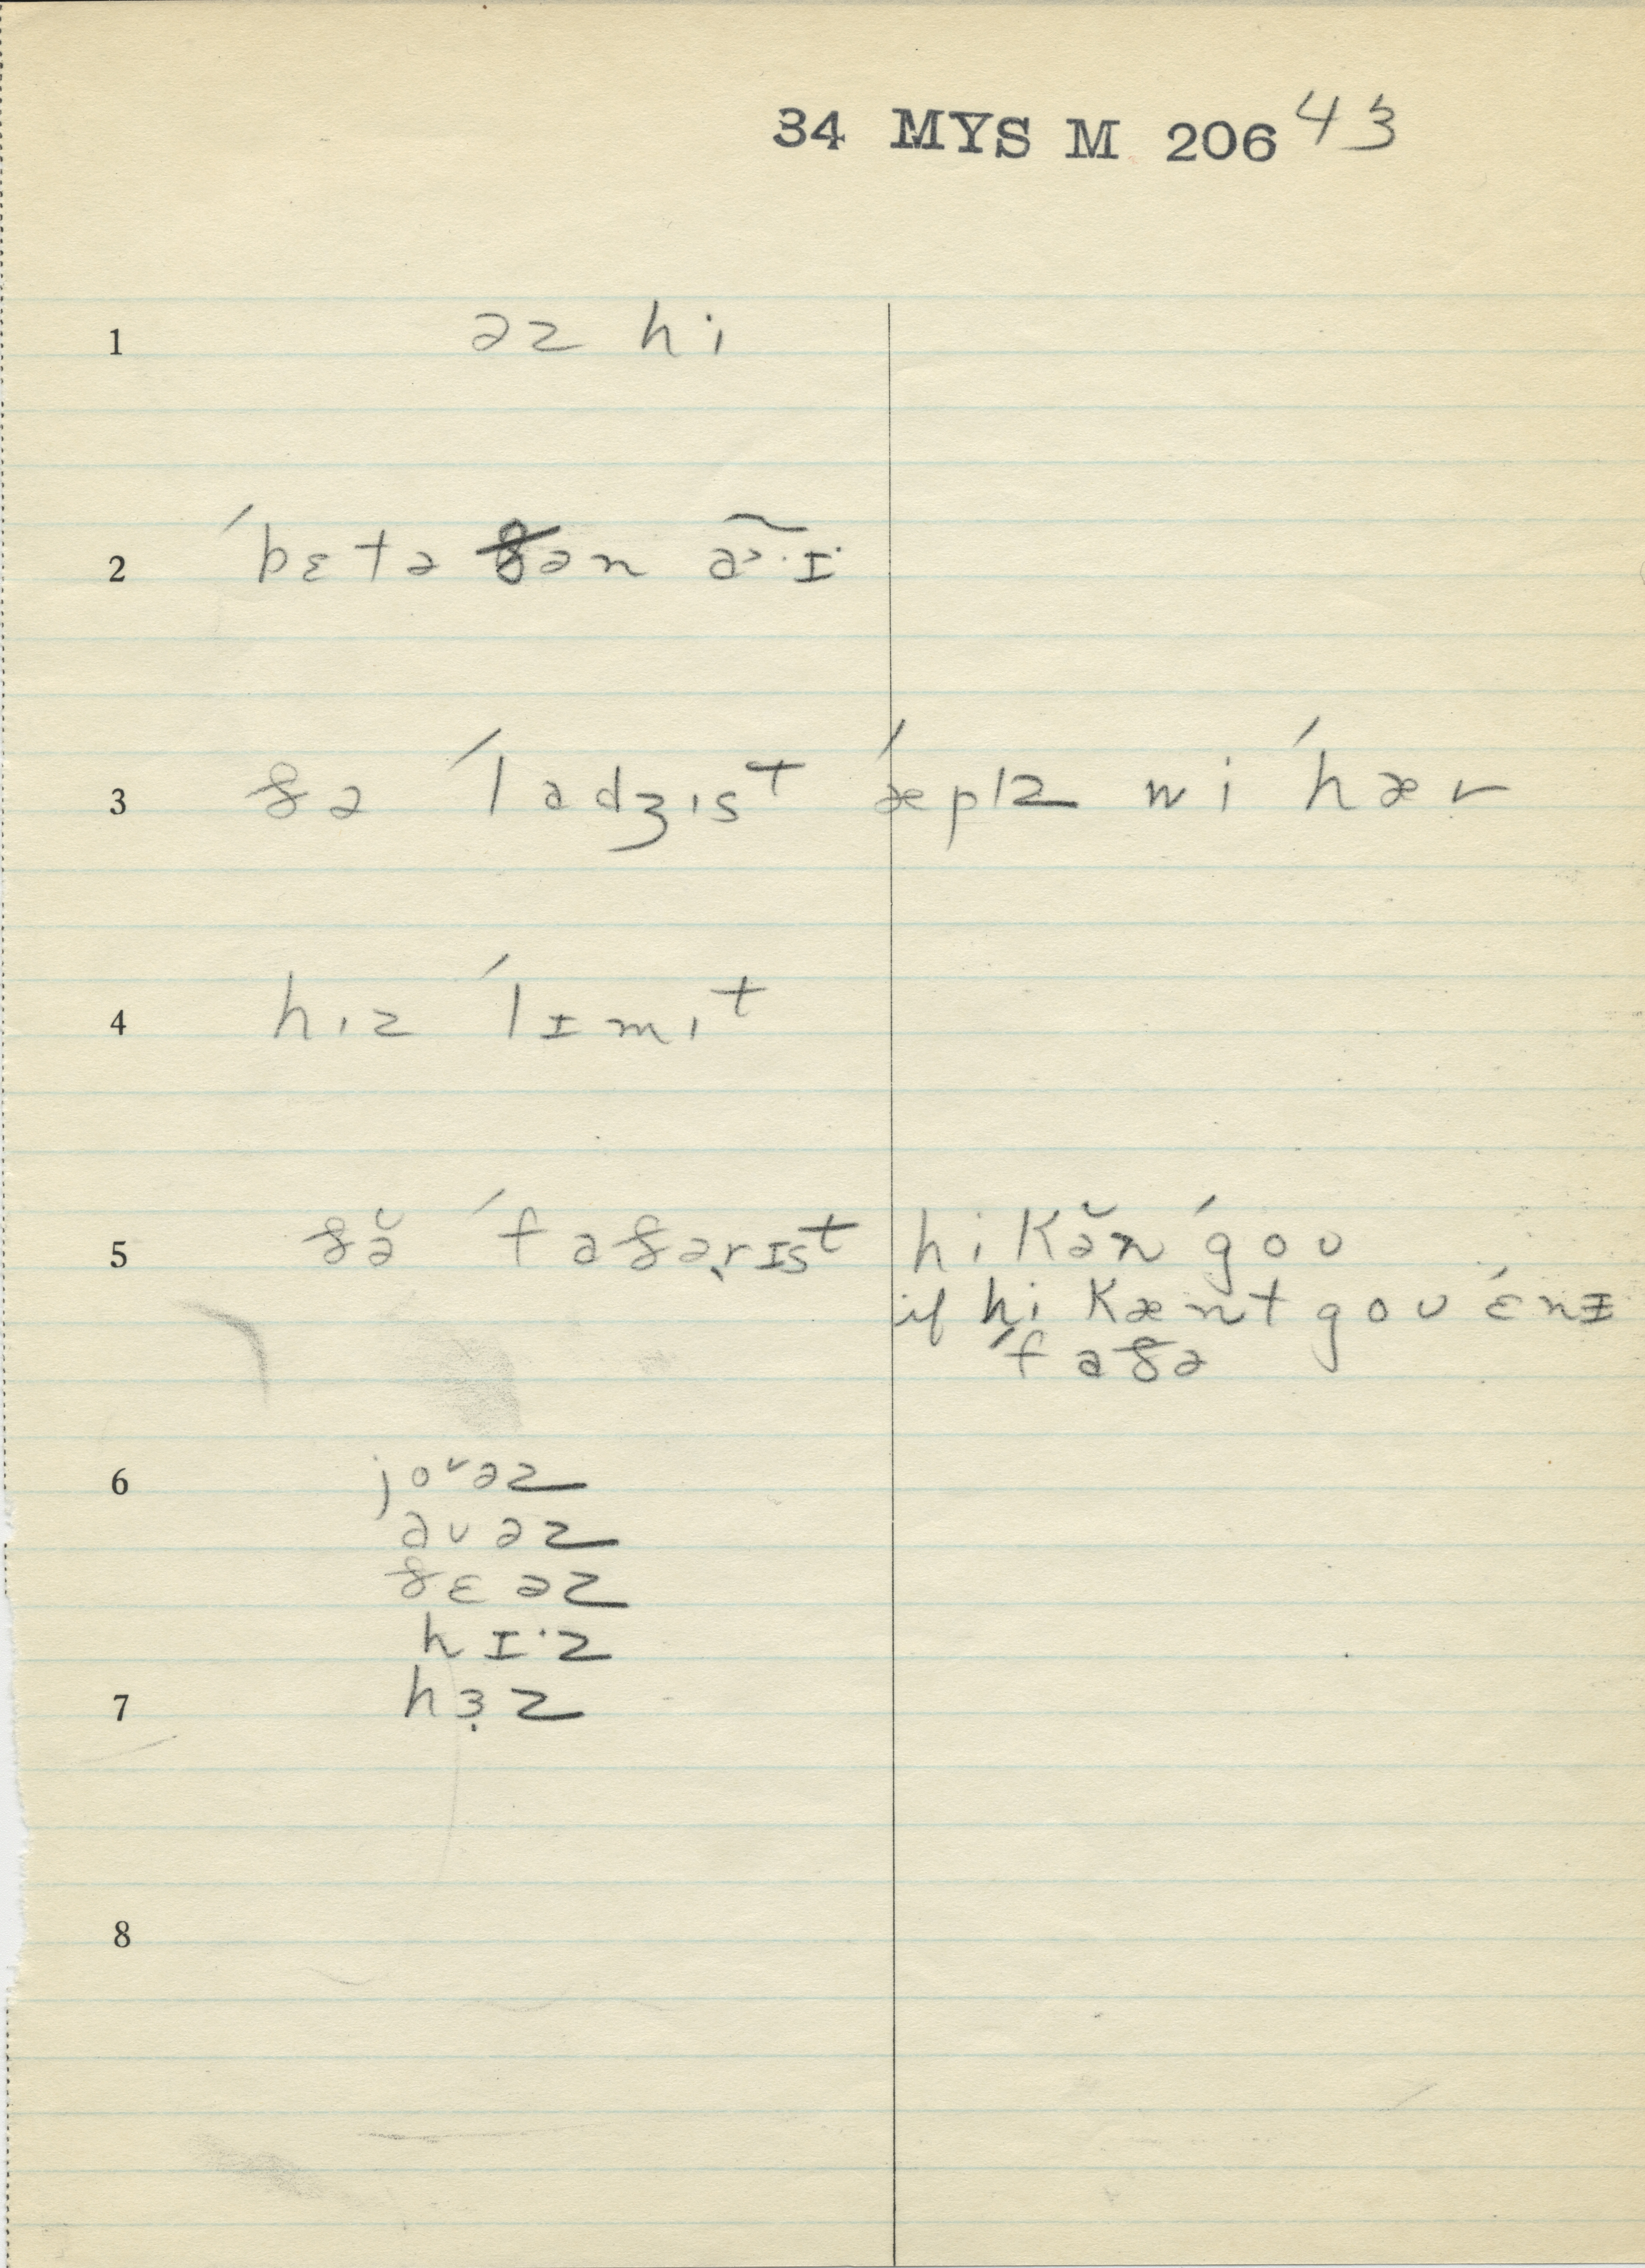 34 MYS M 206 43
1 əz hi
2 ˈbɛtə ðən a˃·ɪ·
3 ðə ˈladʒɪst ˈæplz wi ˈhær
4 hɪz ˈlɪmɪt
5 ðə̆ ˈfaðərɪst hi kə̆n ˈgoʊ
if hi kænt goʊ ˈɛnɪ
ˈfaðə
6 joʊəz
aʊəz
ðɛəz
hɪ·z
7 hɜ̣z
8